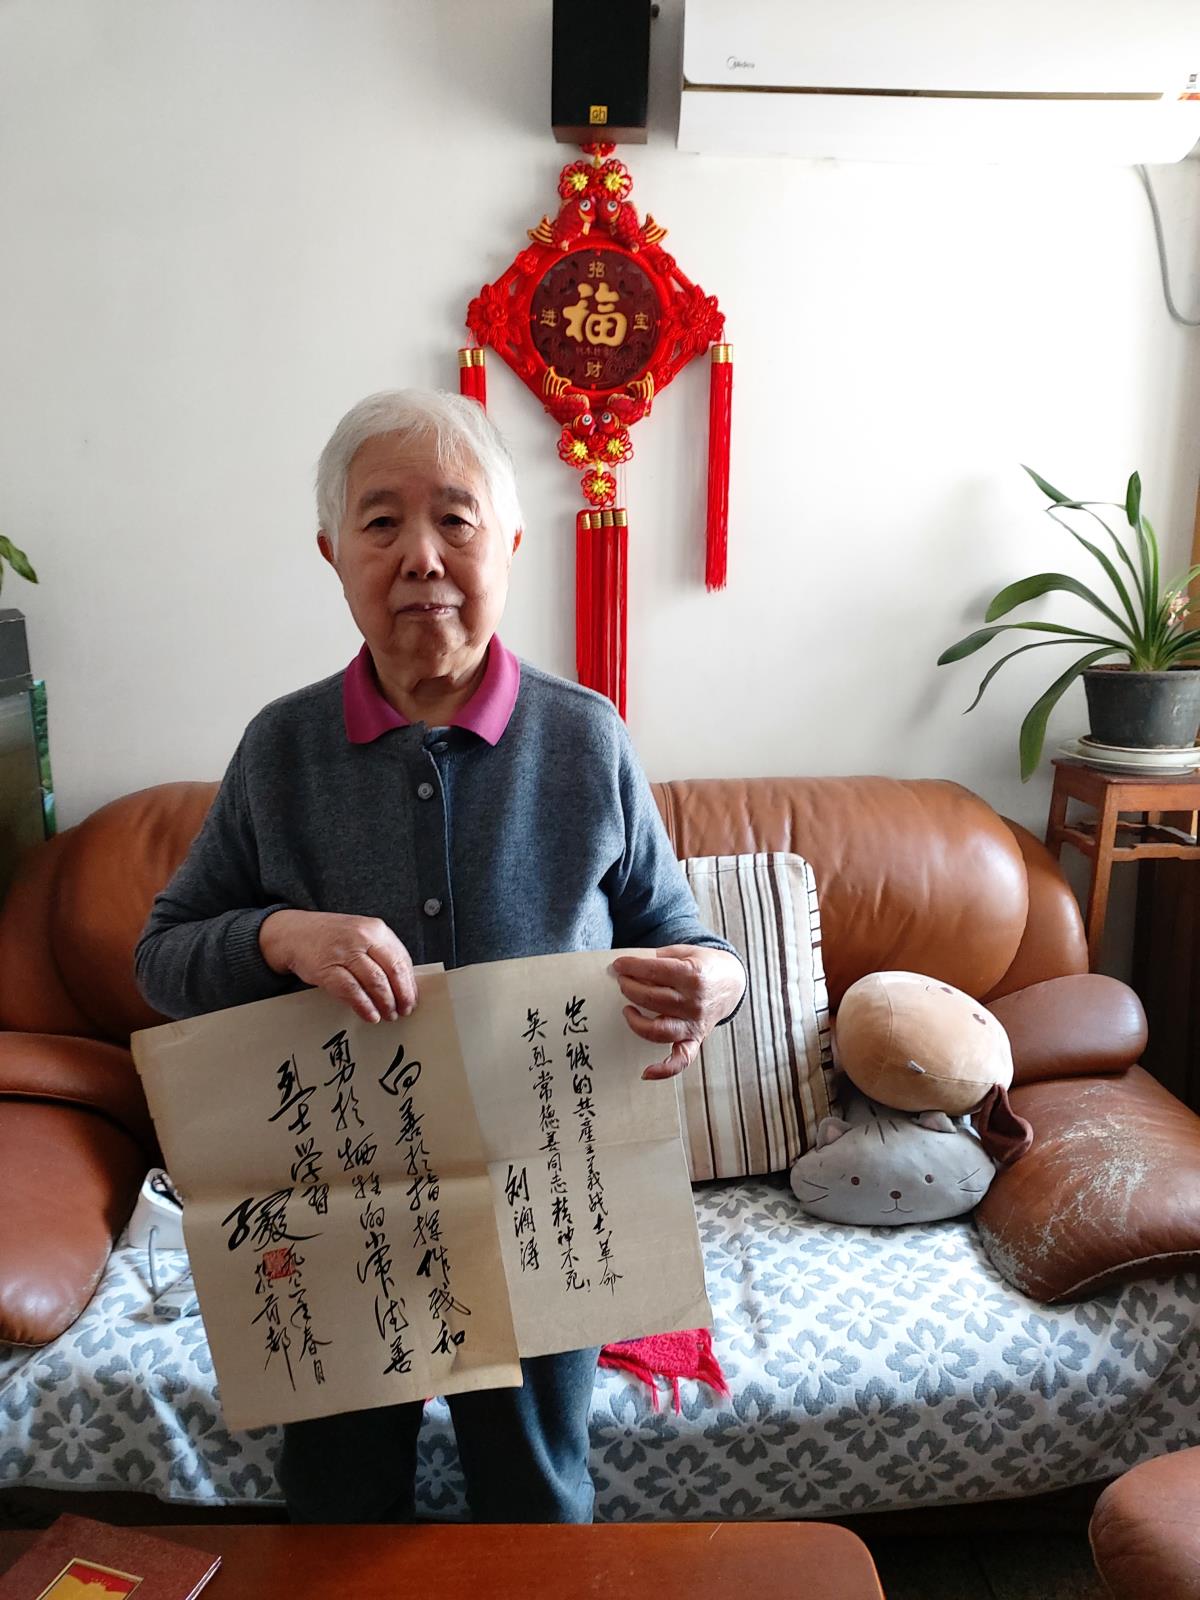 Midea
招
进 福 宝
财
忠誠的共產主義战士革命
英烈常德善同志精神不死!
刘澜涛
向善於指揮作战和
勇於牺牲的常德善
烈士学習
孙毅
春月
於首都